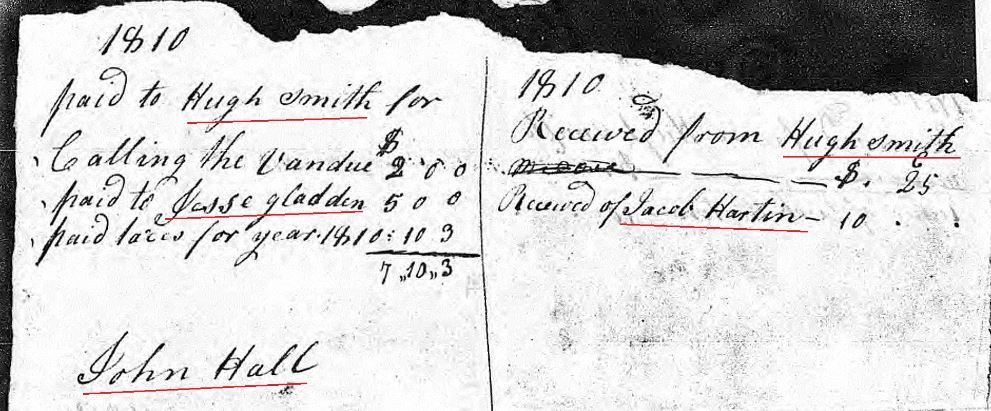 1810
paid to Hugh Smith for
Calling the Vandue $ 2 0 0
paid to Jesse gladden 5 0 0
paid taxes for year 1810: 10 3
7,,10,,3
John Hall
1810
Received from Hugh Smith
$. 25
Received of Jacob Hartin - 10 . .